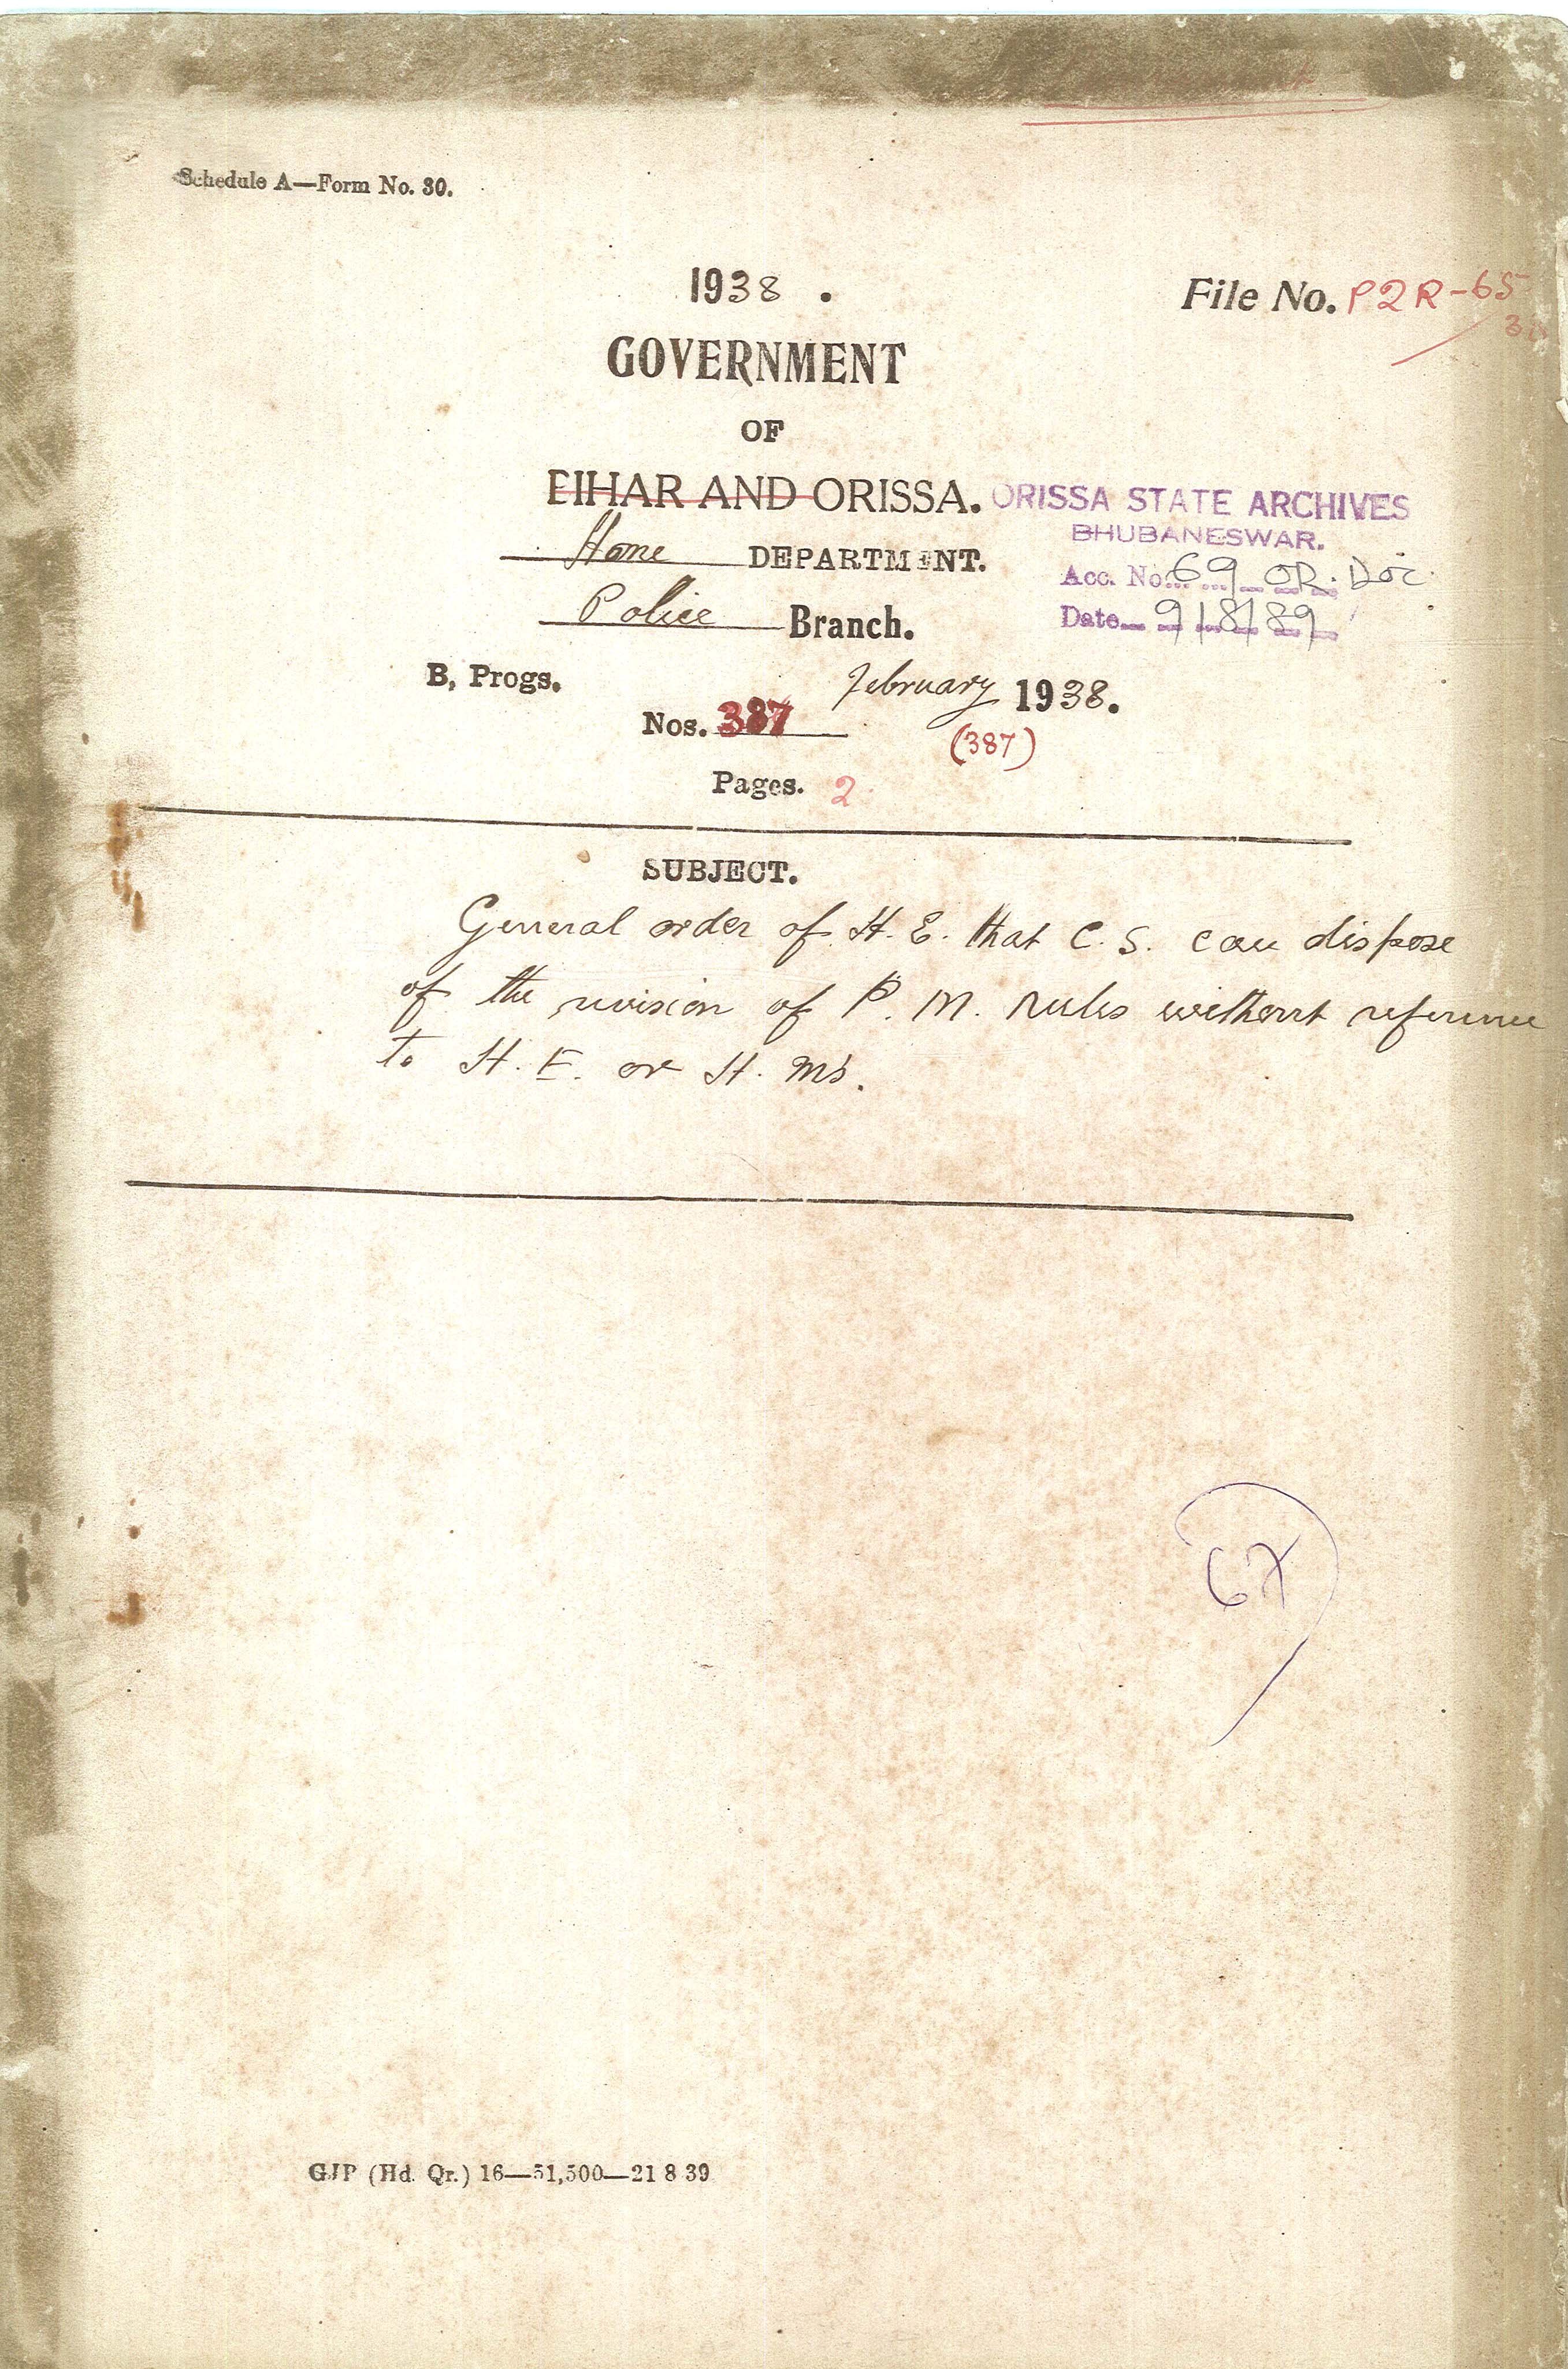 Schedule A—Form No. 30.
1938.
File No. P2R-65
GOVERNMENT
OF
BIHAR AND ORISSA.
ORISSA STATE ARCHIVES
BHUBANESWAR.
Home DEPARTMENT.
Acc. No. 69 OR. Doc.
Police Branch.
Date 9/8/89
B, Progs.
February 1938.
Nos. 387
(387)
Pages. 2
SUBJECT.
General order of H. E. that C. S. can dispose
of the revision of P. M. Rules without reference
to H. E. or H. Ms.
67
GJP (Hd. Qr.) 16—51,500—21 8 39